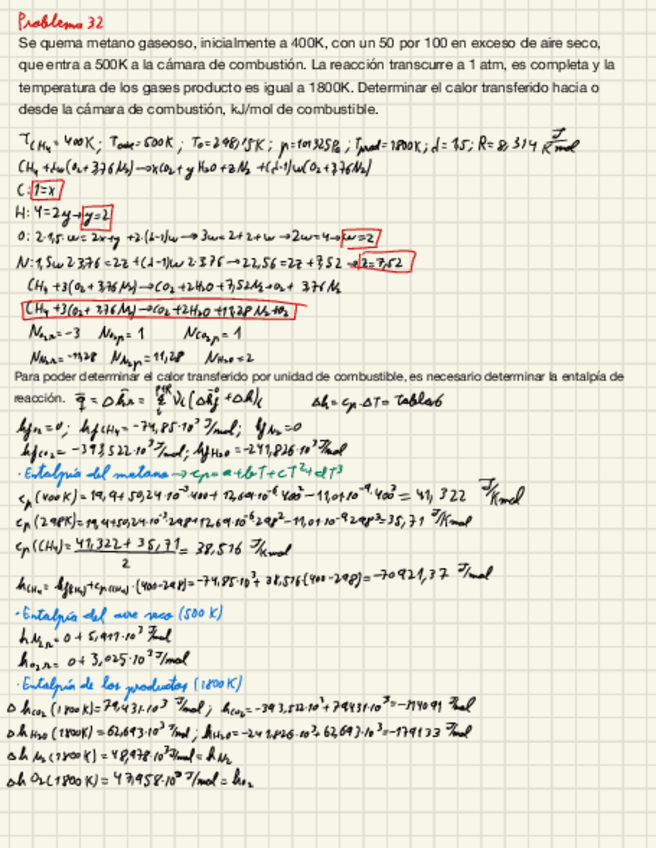 Problema 32
Se quema metano gaseoso, inicialmente a 400K, con un 50 por 100 en exceso de aire seco,
que entra a 500K a la cámara de combustión. La reacción transcurre a 1 atm, es completa y la
temperatura de los gases producto es igual a 1800K. Determinar el calor transferido hacia o
desde la cámara de combustión, kJ/mol de combustible.
T_CH₄ = 400K; = 500K; T₀ = 298,15K; p = 101325Pa; T_prod = 1800K; d = 1,5; R = 8,314 J/Kmol
CH₄ + λw(O₂ + 3,76N₂) → xCO₂ + yH₂O + zN₂ + (λ-1)w(O₂ + 3,76N₂)
C: 1 = x
H: 4 = 2y → y = 2
O: 2·1,5·w = 2x + y + 2·(λ-1)w → 3w = 2 + 2 + w → 2w = 4 → w = 2
N: 1,5w2·3,76 = 2z + (λ-1)w2·3,76 → 22,56 = 2z + 7,52 → z = 7,52
CH₄ + 3(O₂ + 3,76N₂) → CO₂ + 2H₂O + 7,52N₂ + O₂ + 3,76N₂
CH₄ + 3(O₂ + 3,76N₂) → CO₂ + 2H₂O + 11,28N₂ + O₂
N_O₂,R = -3 N_O₂,p = 1 N_CO₂,p = 1
N_N₂,R = -11,28 N_N₂,p = 11,28 N_H₂O = 2
Para poder determinar el calor transferido por unidad de combustible, es necesario determinar la entalpía de
reacción. Δh = cp·ΔT = tabla 6
hf_O₂ = 0; hf_CH₄ = -74,85·10³ J/mol; hf_N₂ = 0
hf_CO₂ = -393,522·10³ J/mol; hf_H₂O = -241,826·10³ J/mol
· Entalpía del metano → cp = a + bT + cT² + dT³
cp(400K) = 19,9 + 50,24·10⁻³·400 + 12,69·10⁻⁶·400² - 11,01·10⁻⁹·400³ = 41,322 J/Kmol
cp(298K) = 19,9 + 50,24·10⁻³·298 + 12,69·10⁻⁶·298² - 11,01·10⁻⁹·298³ = 35,71 J/Kmol
cp(CH₄) = (41,322 + 35,71)/2 = 38,516 J/Kmol
h_CH₄ = hf(CH₄) + cp(CH₄)·(400-298) = -74,85·10³ + 38,516(400-298) = -70921,37 J/mol
· Entalpía del aire seco (500K)
h_N₂,R = 0 + 5,911·10³ J/mol
h_O₂,R = 0 + 3,025·10³ J/mol
· Entalpía de los productos (1800K)
Δh_CO₂(1800K) = 79,431·10³ J/mol; h_CO₂ = -393,522·10³ + 79,431·10³ = -314091 J/mol
Δh_H₂O(1800K) = 62,693·10³ J/mol; h_H₂O = -241,826·10³ + 62,693·10³ = -179133 J/mol
Δh N₂(1800K) = 48,978·10³ J/mol = h_N₂
Δh O₂(1800K) = 47,958·10³ J/mol = h_O₂